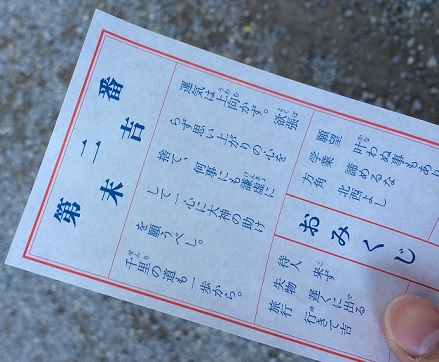 第二番
末吉
運気は上向かず。欲張
らず思い上がりの心を
捨て、何事にも謙虚に
して一心に大神の助け
を願うべし。
千里の道も一歩から。
おみくじ
願望 叶わぬ事もあ
学業 諦めるな
方角 北西よし
待人 来ず
失物 遅くに出る
旅行 行きて吉